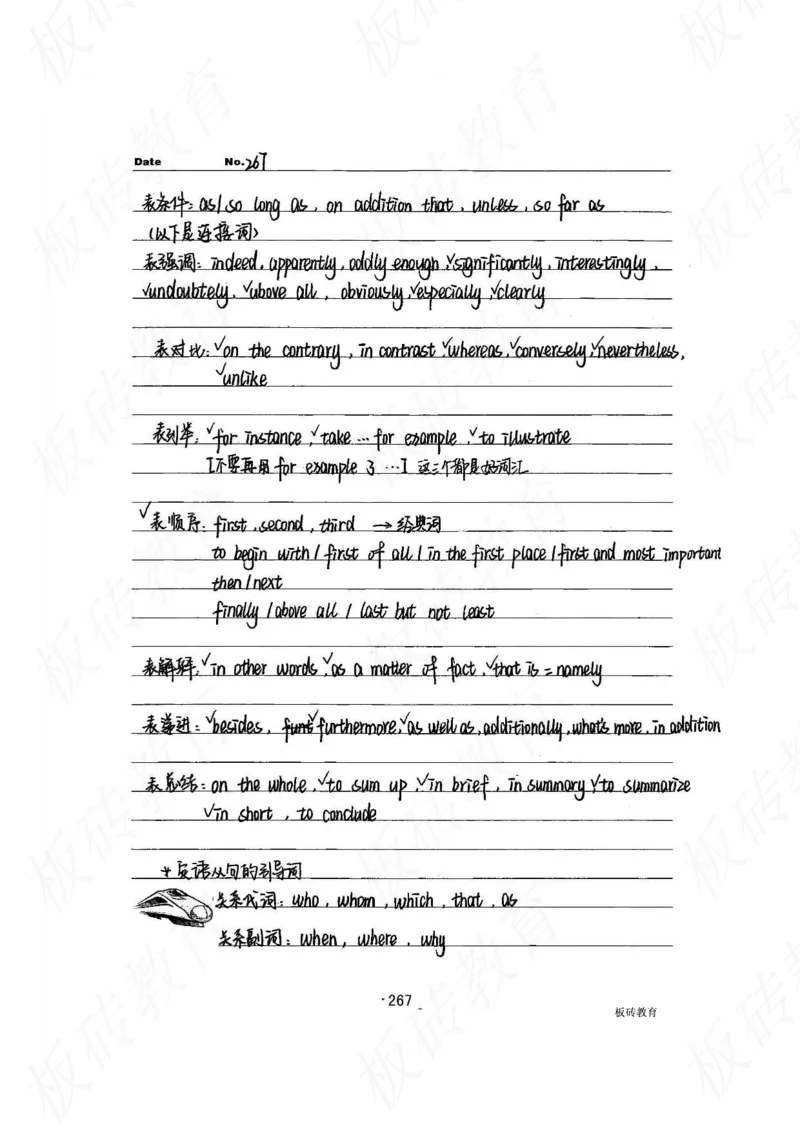 Date No.267
表条件: as/so long as, on addition that, unless, so far as
(以下是连接词)
表强调: indeed, apparently, oddly enough, √significantly, interestingly,
√undoubtely, √above all, obviously, √especially, √clearly
表对比: √on the contrary, in contrast √whereas, √conversely, √nevertheless,
√unlike
表列举: √for instance, √take … for example, √to illustrate
[不要再用 for example 了 …] 这三个都是好词汇
√表顺序: first, second, third → 经典词
to begin with / first of all / in the first place / first and most important
then / next
finally / above all / last but not least
表解释: √in other words, √as a matter of fact, √that is = namely
表递进: √besides, √furthermore, √as well as, additionally, what's more, in addition
表总结: on the whole, √to sum up, √in brief, in summary, √to summarize
√in short, to conclude
* 英语从句的引导词
关系代词: who, whom, which, that, as
关系副词: when, where, why
·267
板砖教育